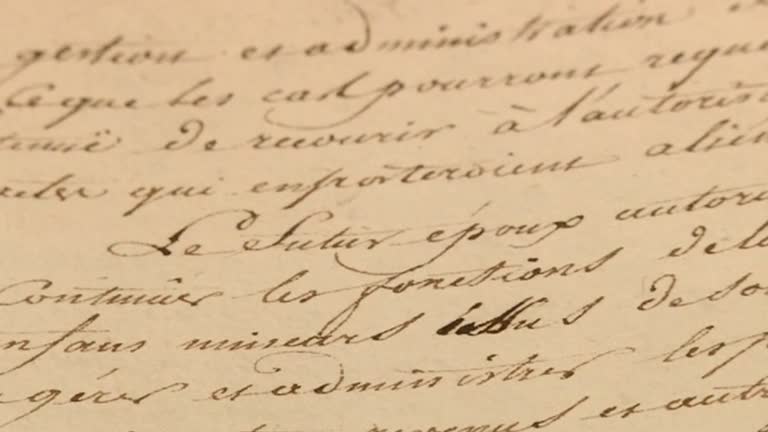 gestion et administration
Ce que les cas pourront requé
tinuë de recourir à l'autoris
actes qui emporteroient alién
Le futur époux autoris
Continuër les fonctions de la
enfans mineurs issus de so
gérer et administrer les p
revenus et autr